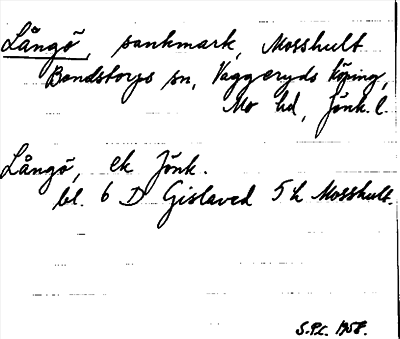 Långö, sankmark, Mosshult
Bondstorps sn, Vaggeryds köping,
Mo hd, Jönk. l.
Långö, ek Jönk.
bl. 6 D Gislaved 5 h Mosshult.
S.P.L. 1958.